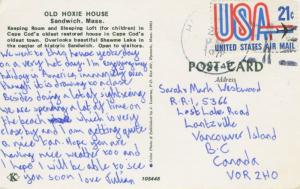 OLD HOXIE HOUSE
Sandwich, Mass.
Keeping Room and Sleeping Loft (for children) in
Cape Cod's oldest restored house in Cape Cod's
oldest town. Overlooks beautiful Shawme Lake in
the center of historic Sandwich. Open to visitors.
We went to this house yesterday
on a very hot day. I'm enjoying my
holiday in America immensely even
though it is drawing to a close.
Besides doing the sightseeing
we are spending a lot of time on
the beach which is very
close by and I am getting quite
a nice tan. Hope you are
having nice weather too and
hope I will be able to see
you soon love Julian
106448
USA 21c
UNITED STATES AIR MAIL
POST CARD
Address
Sarah Westwood
R.R.1, 5366
Lost Lake Road
Lantzville
Vancouver Island
B.C
Canada
V0R 2H0